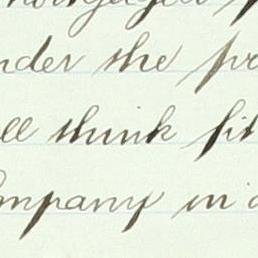 nder the po
ll think fit
ompany in